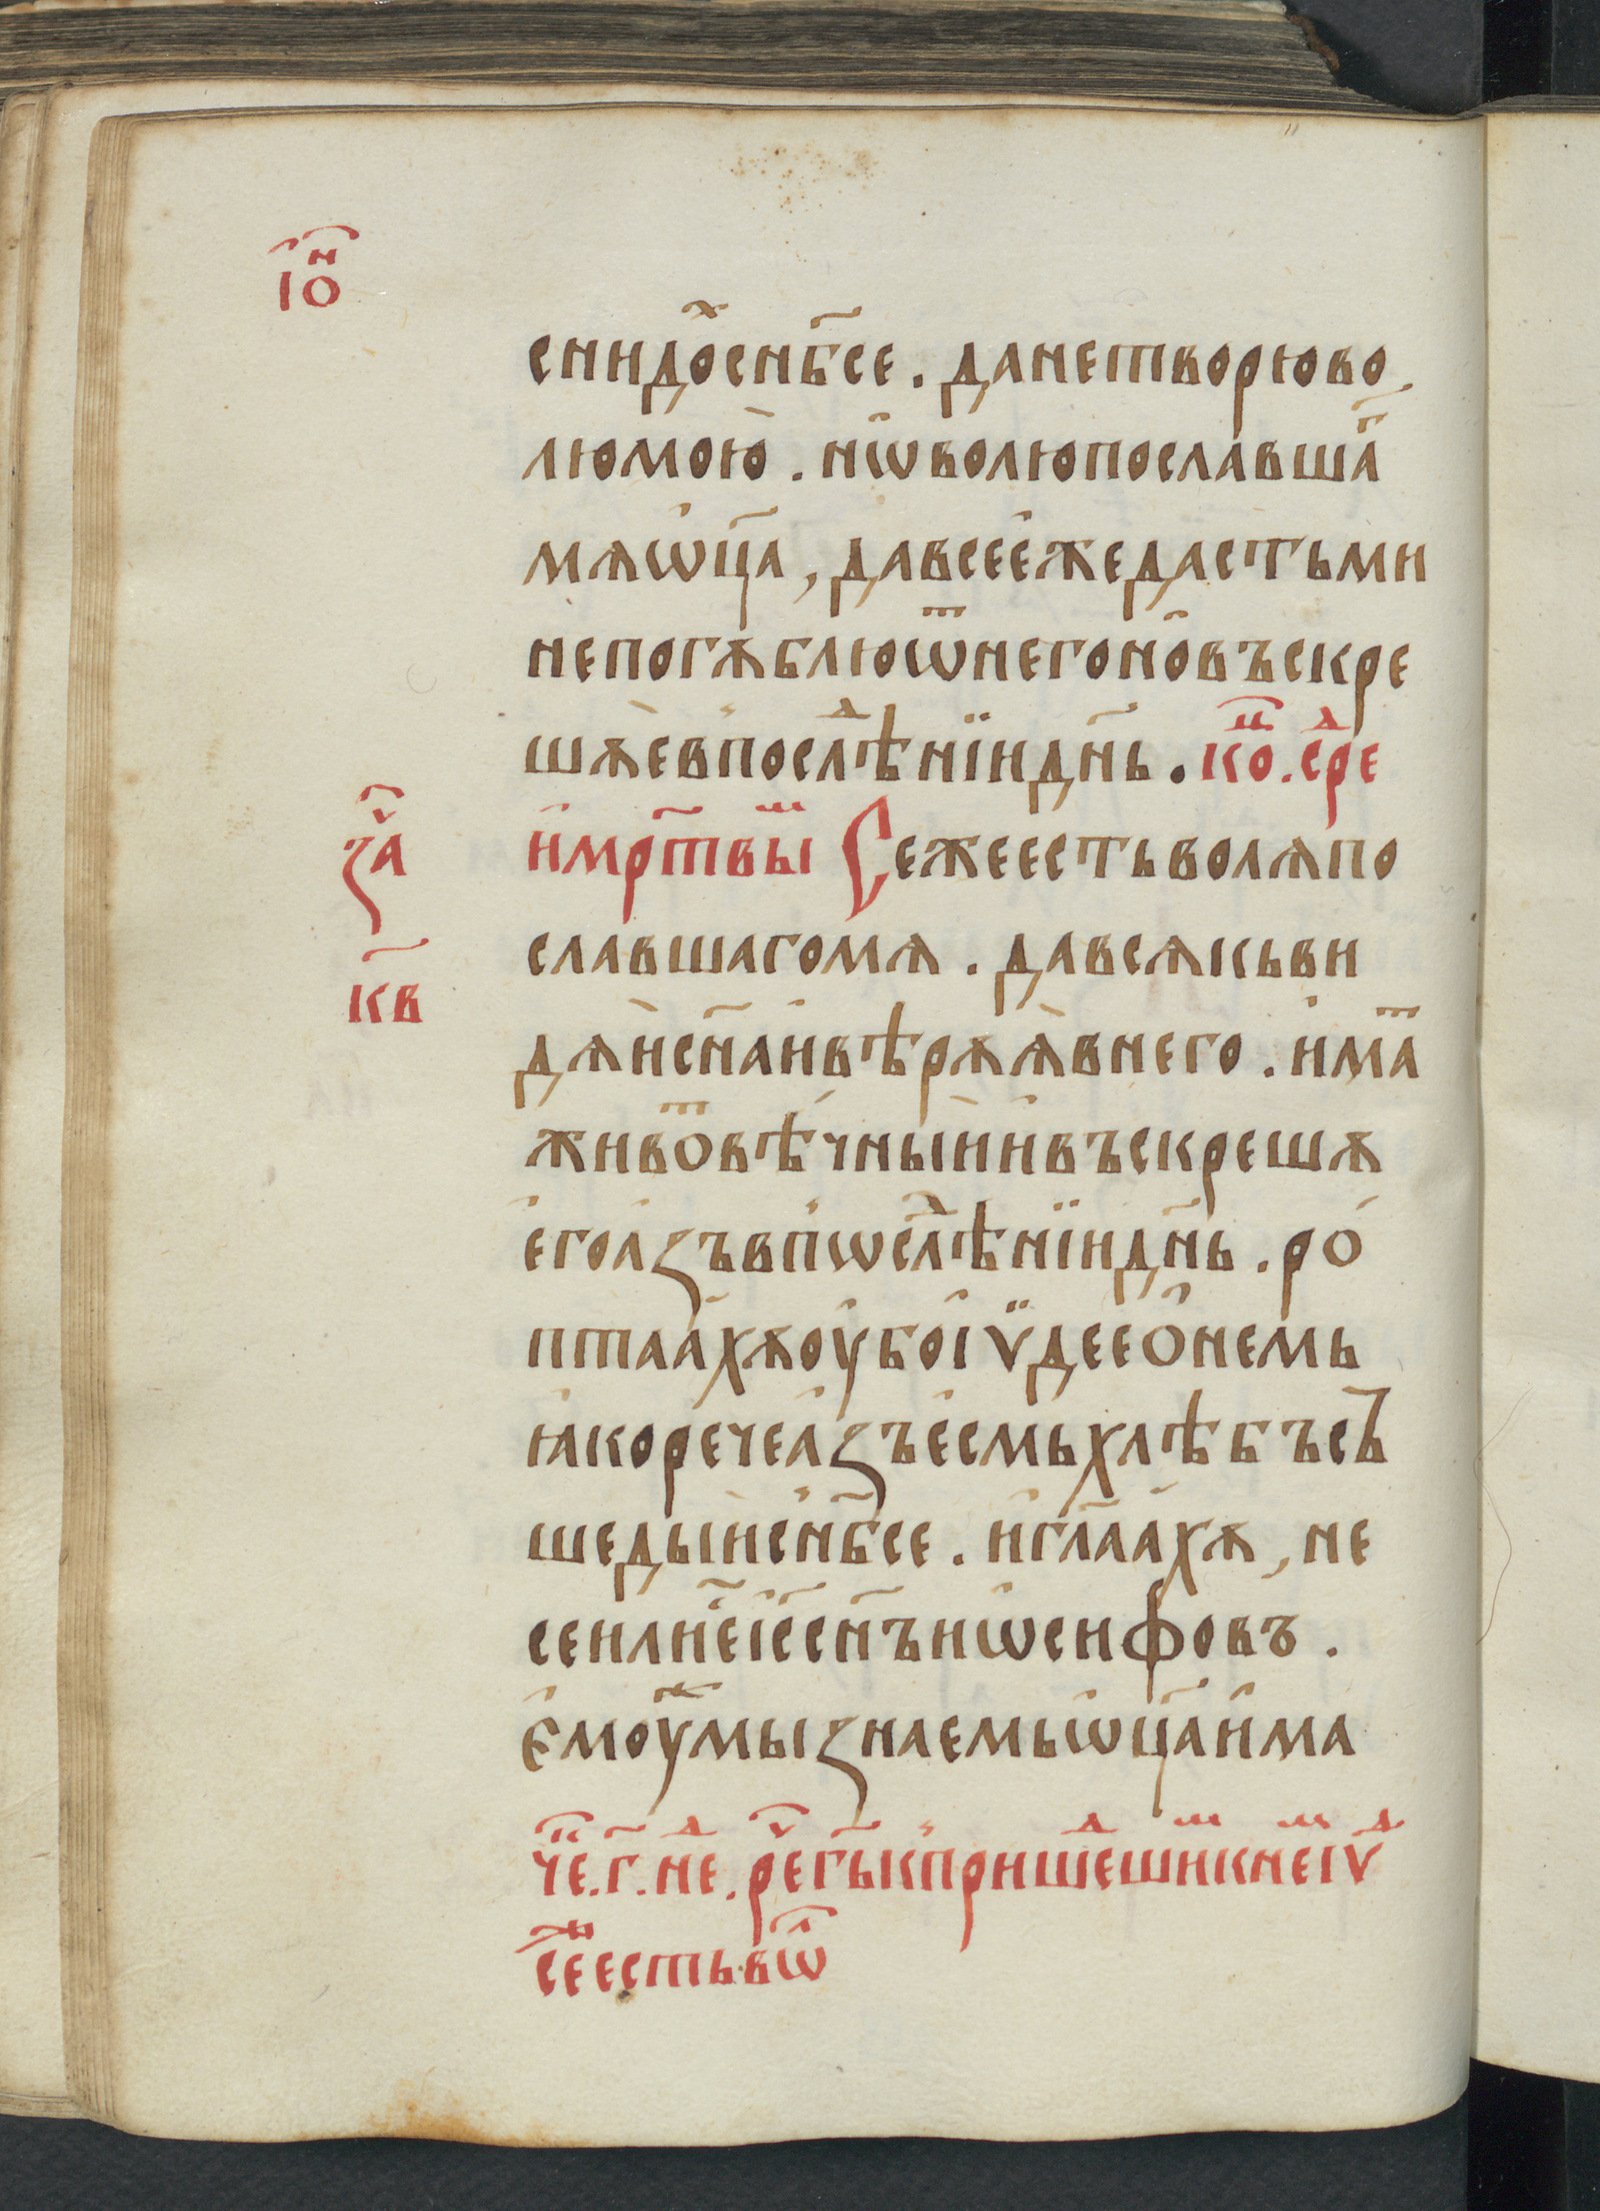 іѡ҃н
сниидо́ⷯ снб҃се . данетворюво
люмою̀ . нѡ̑волюпославшаⷢ҇
мѧѿц҃а , давсее́жедастьми
непогѫблюѿⷮнегоно̑въскре
шѫ̀е҆в҆послѣⷣнїидн҃ь . коⷩ҇ . среⷣ
и҆мр҃твыⷨ Сежеестьволѧпо
за҃ⷱ
славшагомѧ . давсѧкьви
кв҃
дѧ̀исн҃аи҆вѣрѫѧ̀внего . и҆маⷮ
живоⷮвѣ́чныѝи҆въскрешѫ
е҆гоа҆зъвпѡ҆слѣⷣнїидн҃ь . ро́
птаа́хѫоу҆бо҆іѵ̈деео҆немь
ꙗ҆коречеа҆зъе҆смьхлѣбъсъ
шедыѝс҆нб҃се . и҆гл҃аа́хѫ , не
сеилиⷭ҇е҆і҆ссн҃ъиѡ҆сифовъ .
е҆моуⷤ҇мызнаемьѿц҃аи҆ма
чеⷮ . г҃ . неⷣ . реⷱ҇г҃ькпришеⷣшиⷨкнеⷨіѵⷣ
сеⷤ҇естьвѡⷧ